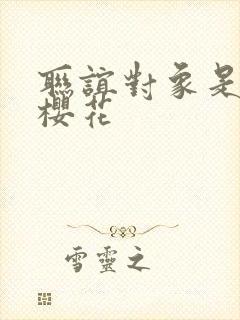 聯誼對象是
櫻花
雪靈之